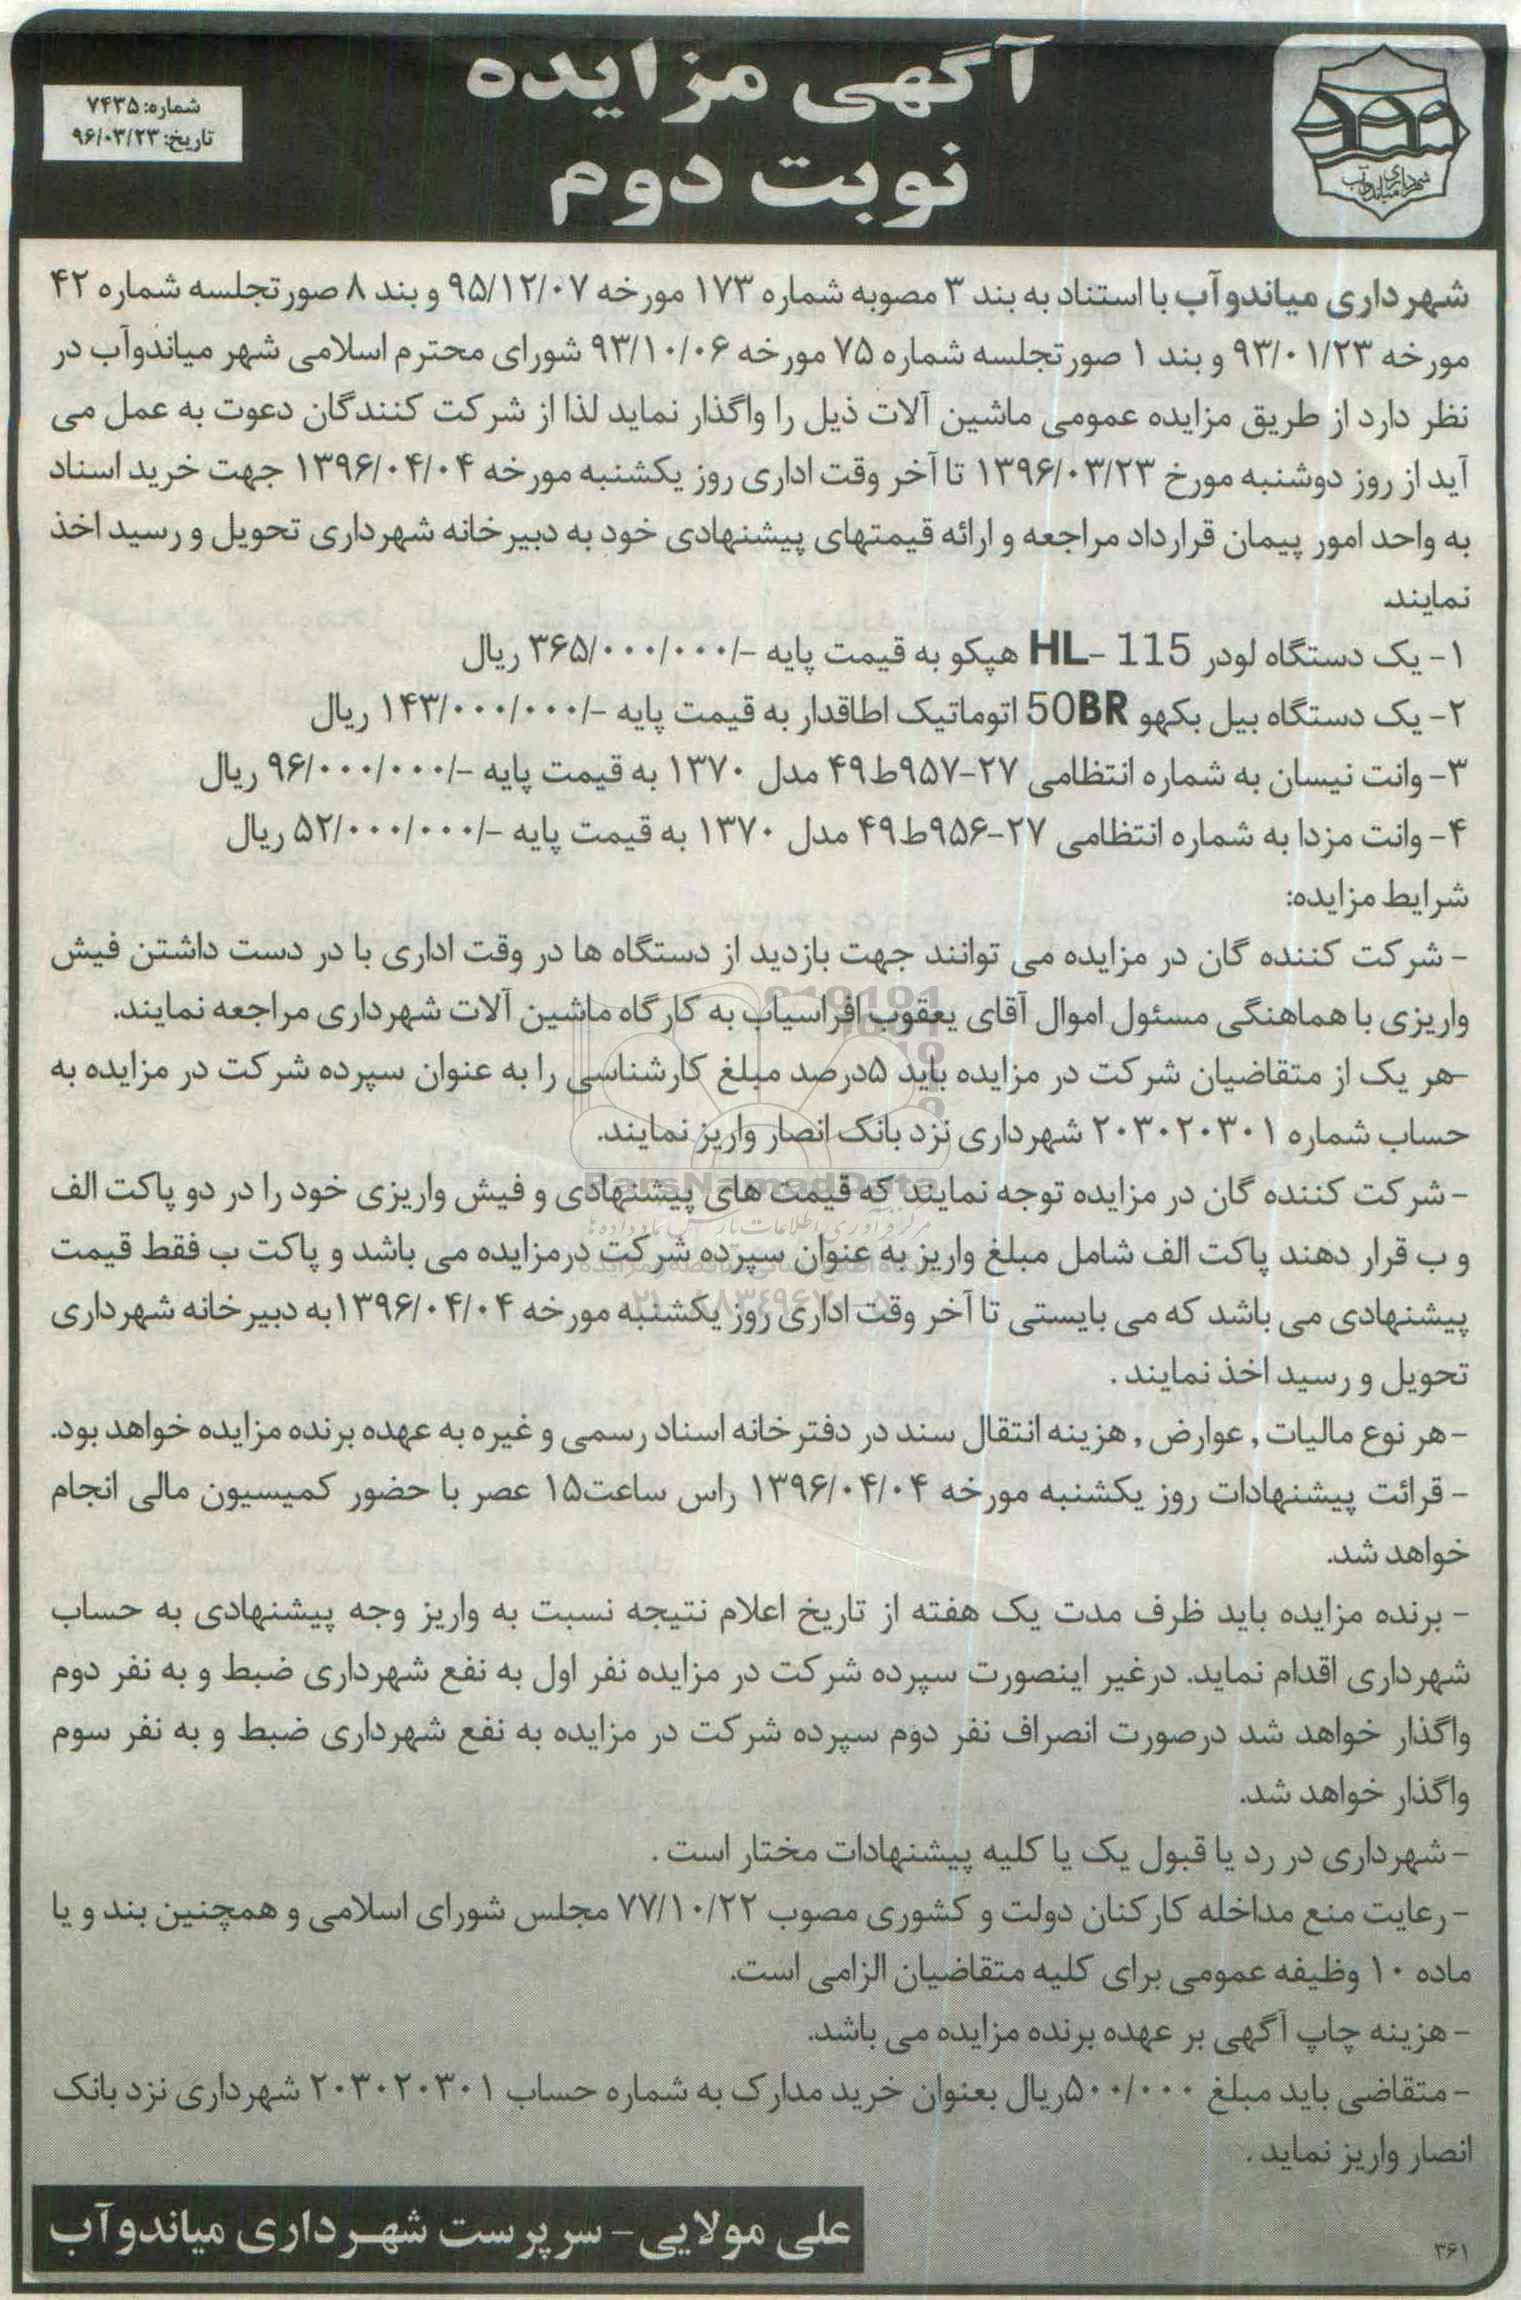 آگهی مزایده
نوبت دوم
شماره: ۷۴۳۵
تاریخ: ۹۶/۰۳/۲۳
شهرداری میاندوآب
شهرداری میاندوآب با استناد به بند ۳ مصوبه شماره ۱۷۳ مورخه ۹۵/۱۲/۰۷ و بند ۸ صورتجلسه شماره ۴۲
مورخه ۹۳/۰۱/۲۳ و بند ۱ صورتجلسه شماره ۷۵ مورخه ۹۳/۱۰/۰۶ شورای محترم اسلامی شهر میاندوآب در
نظر دارد از طریق مزایده عمومی ماشین آلات ذیل را واگذار نماید لذا از شرکت کنندگان دعوت به عمل می
آید از روز دوشنبه مورخ ۱۳۹۶/۰۳/۲۳ تا آخر وقت اداری روز یکشنبه مورخه ۱۳۹۶/۰۴/۰۴ جهت خرید اسناد
به واحد امور پیمان قرارداد مراجعه و ارائه قیمتهای پیشنهادی خود به دبیرخانه شهرداری تحویل و رسید اخذ
نمایند.
۱- یک دستگاه لودر HL- 115 هپکو به قیمت پایه -/۳۶۵/۰۰۰/۰۰۰ ریال
۲- یک دستگاه بیل بکهو 50BR اتوماتیک اطاقدار به قیمت پایه -/۱۴۳/۰۰۰/۰۰۰ ریال
۳- وانت نیسان به شماره انتظامی ۲۷-۹۵۷ط۴۹ مدل ۱۳۷۰ به قیمت پایه -/۹۶/۰۰۰/۰۰۰ ریال
۴- وانت مزدا به شماره انتظامی ۲۷-۹۵۶ط۴۹ مدل ۱۳۷۰ به قیمت پایه -/۵۲/۰۰۰/۰۰۰ ریال
شرایط مزایده:
- شرکت کننده گان در مزایده می توانند جهت بازدید از دستگاه ها در وقت اداری با در دست داشتن فیش
واریزی با هماهنگی مسئول اموال آقای یعقوب افراسیاب به کارگاه ماشین آلات شهرداری مراجعه نمایند.
-هر یک از متقاضیان شرکت در مزایده باید ۵درصد مبلغ کارشناسی را به عنوان سپرده شرکت در مزایده به
حساب شماره ۲۰۳۰۲۰۳۰۱ شهرداری نزد بانک انصار واریز نمایند.
- شرکت کننده گان در مزایده توجه نمایند که قیمت های پیشنهادی و فیش واریزی خود را در دو پاکت الف
و ب قرار دهند پاکت الف شامل مبلغ واریز به عنوان سپرده شرکت درمزایده می باشد و پاکت ب فقط قیمت
پیشنهادی می باشد که می بایستی تا آخر وقت اداری روز یکشنبه مورخه ۱۳۹۶/۰۴/۰۴به دبیرخانه شهرداری
تحویل و رسید اخذ نمایند .
- هر نوع مالیات , عوارض , هزینه انتقال سند در دفترخانه اسناد رسمی و غیره به عهده برنده مزایده خواهد بود.
- قرائت پیشنهادات روز یکشنبه مورخه ۱۳۹۶/۰۴/۰۴ راس ساعت۱۵ عصر با حضور کمیسیون مالی انجام
خواهد شد.
- برنده مزایده باید ظرف مدت یک هفته از تاریخ اعلام نتیجه نسبت به واریز وجه پیشنهادی به حساب
شهرداری اقدام نماید. درغیر اینصورت سپرده شرکت در مزایده نفر اول به نفع شهرداری ضبط و به نفر دوم
واگذار خواهد شد درصورت انصراف نفر دوم سپرده شرکت در مزایده به نفع شهرداری ضبط و به نفر سوم
واگذار خواهد شد.
- شهرداری در رد یا قبول یک یا کلیه پیشنهادات مختار است .
- رعایت منع مداخله کارکنان دولت و کشوری مصوب ۷۷/۱۰/۲۲ مجلس شورای اسلامی و همچنین بند و یا
ماده ۱۰ وظیفه عمومی برای کلیه متقاضیان الزامی است.
- هزینه چاپ آگهی بر عهده برنده مزایده می باشد.
- متقاضی باید مبلغ ۵۰۰/۰۰۰ریال بعنوان خرید مدارک به شماره حساب ۲۰۳۰۲۰۳۰۱ شهرداری نزد بانک
انصار واریز نماید .
علی مولایی - سرپرست شهرداری میاندوآب
۳۶۱
ParsNamadData
مرکز فرآوری اطلاعات پارس نماد داده ها